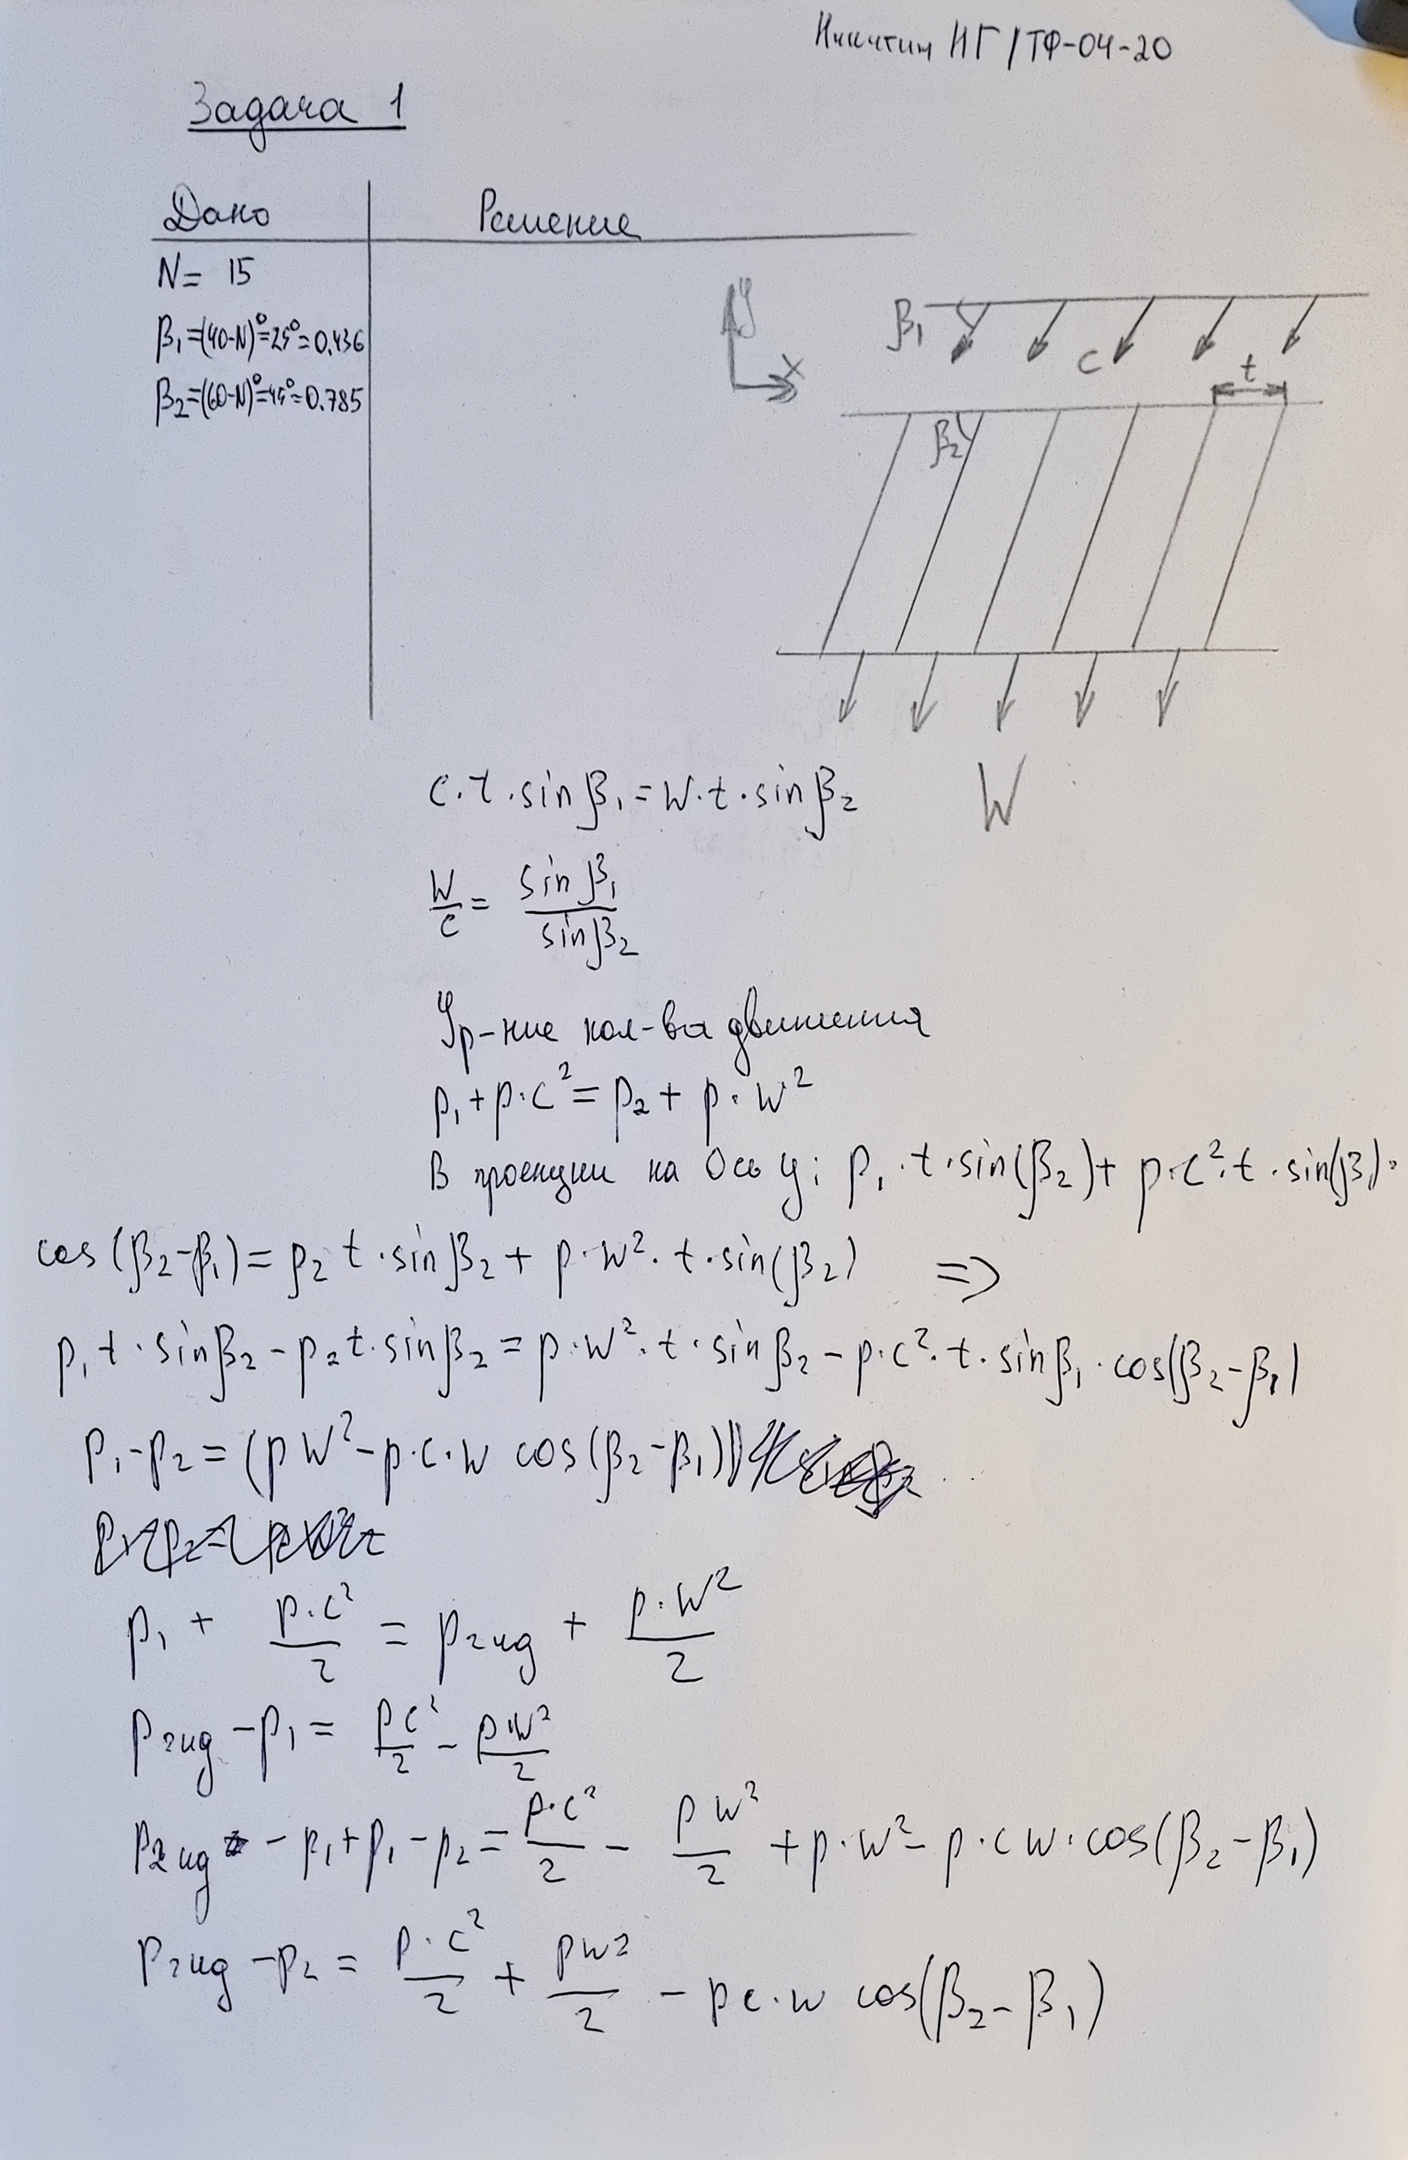 Никитин НГ/ТФ-04-20
Задача 1
Дано Решение
N= 15
β₁=(40-N)°=25°=0.436
β₂=(60-N)°=45°=0.785
y
x
β₁
c
t
β₂
W
c·t·sin β₁=W·t·sin β₂
W/c = sin β₁/sin β₂
Ур-ние кол-ва движения
p₁+ρ·c²=p₂+ρ·w²
В проекции на Ось y: p₁·t·sin(β₂)+ρ·c²·t·sin(β₁)·
cos(β₂-β₁)=p₂ t·sin β₂+ρ·w²·t·sin(β₂) =>
p₁t·sin β₂-p₂t·sin β₂=ρ·w²·t·sin β₂-ρ·c²·t·sin β₁·cos(β₂-β₁)
p₁-p₂=(ρw²-ρ·c·w cos(β₂-β₁))
p₁ + ρ·c²/2 = p₂ид + ρ·w²/2
p₂ид -p₁= ρc²/2 - ρw²/2
p₂ид -p₁+p₁-p₂=ρ·c²/2 - ρw²/2 +ρ·w²-ρ·cw·cos(β₂-β₁)
p₂ид -p₂= ρ·c²/2 + ρw²/2 - ρc·w cos(β₂-β₁)